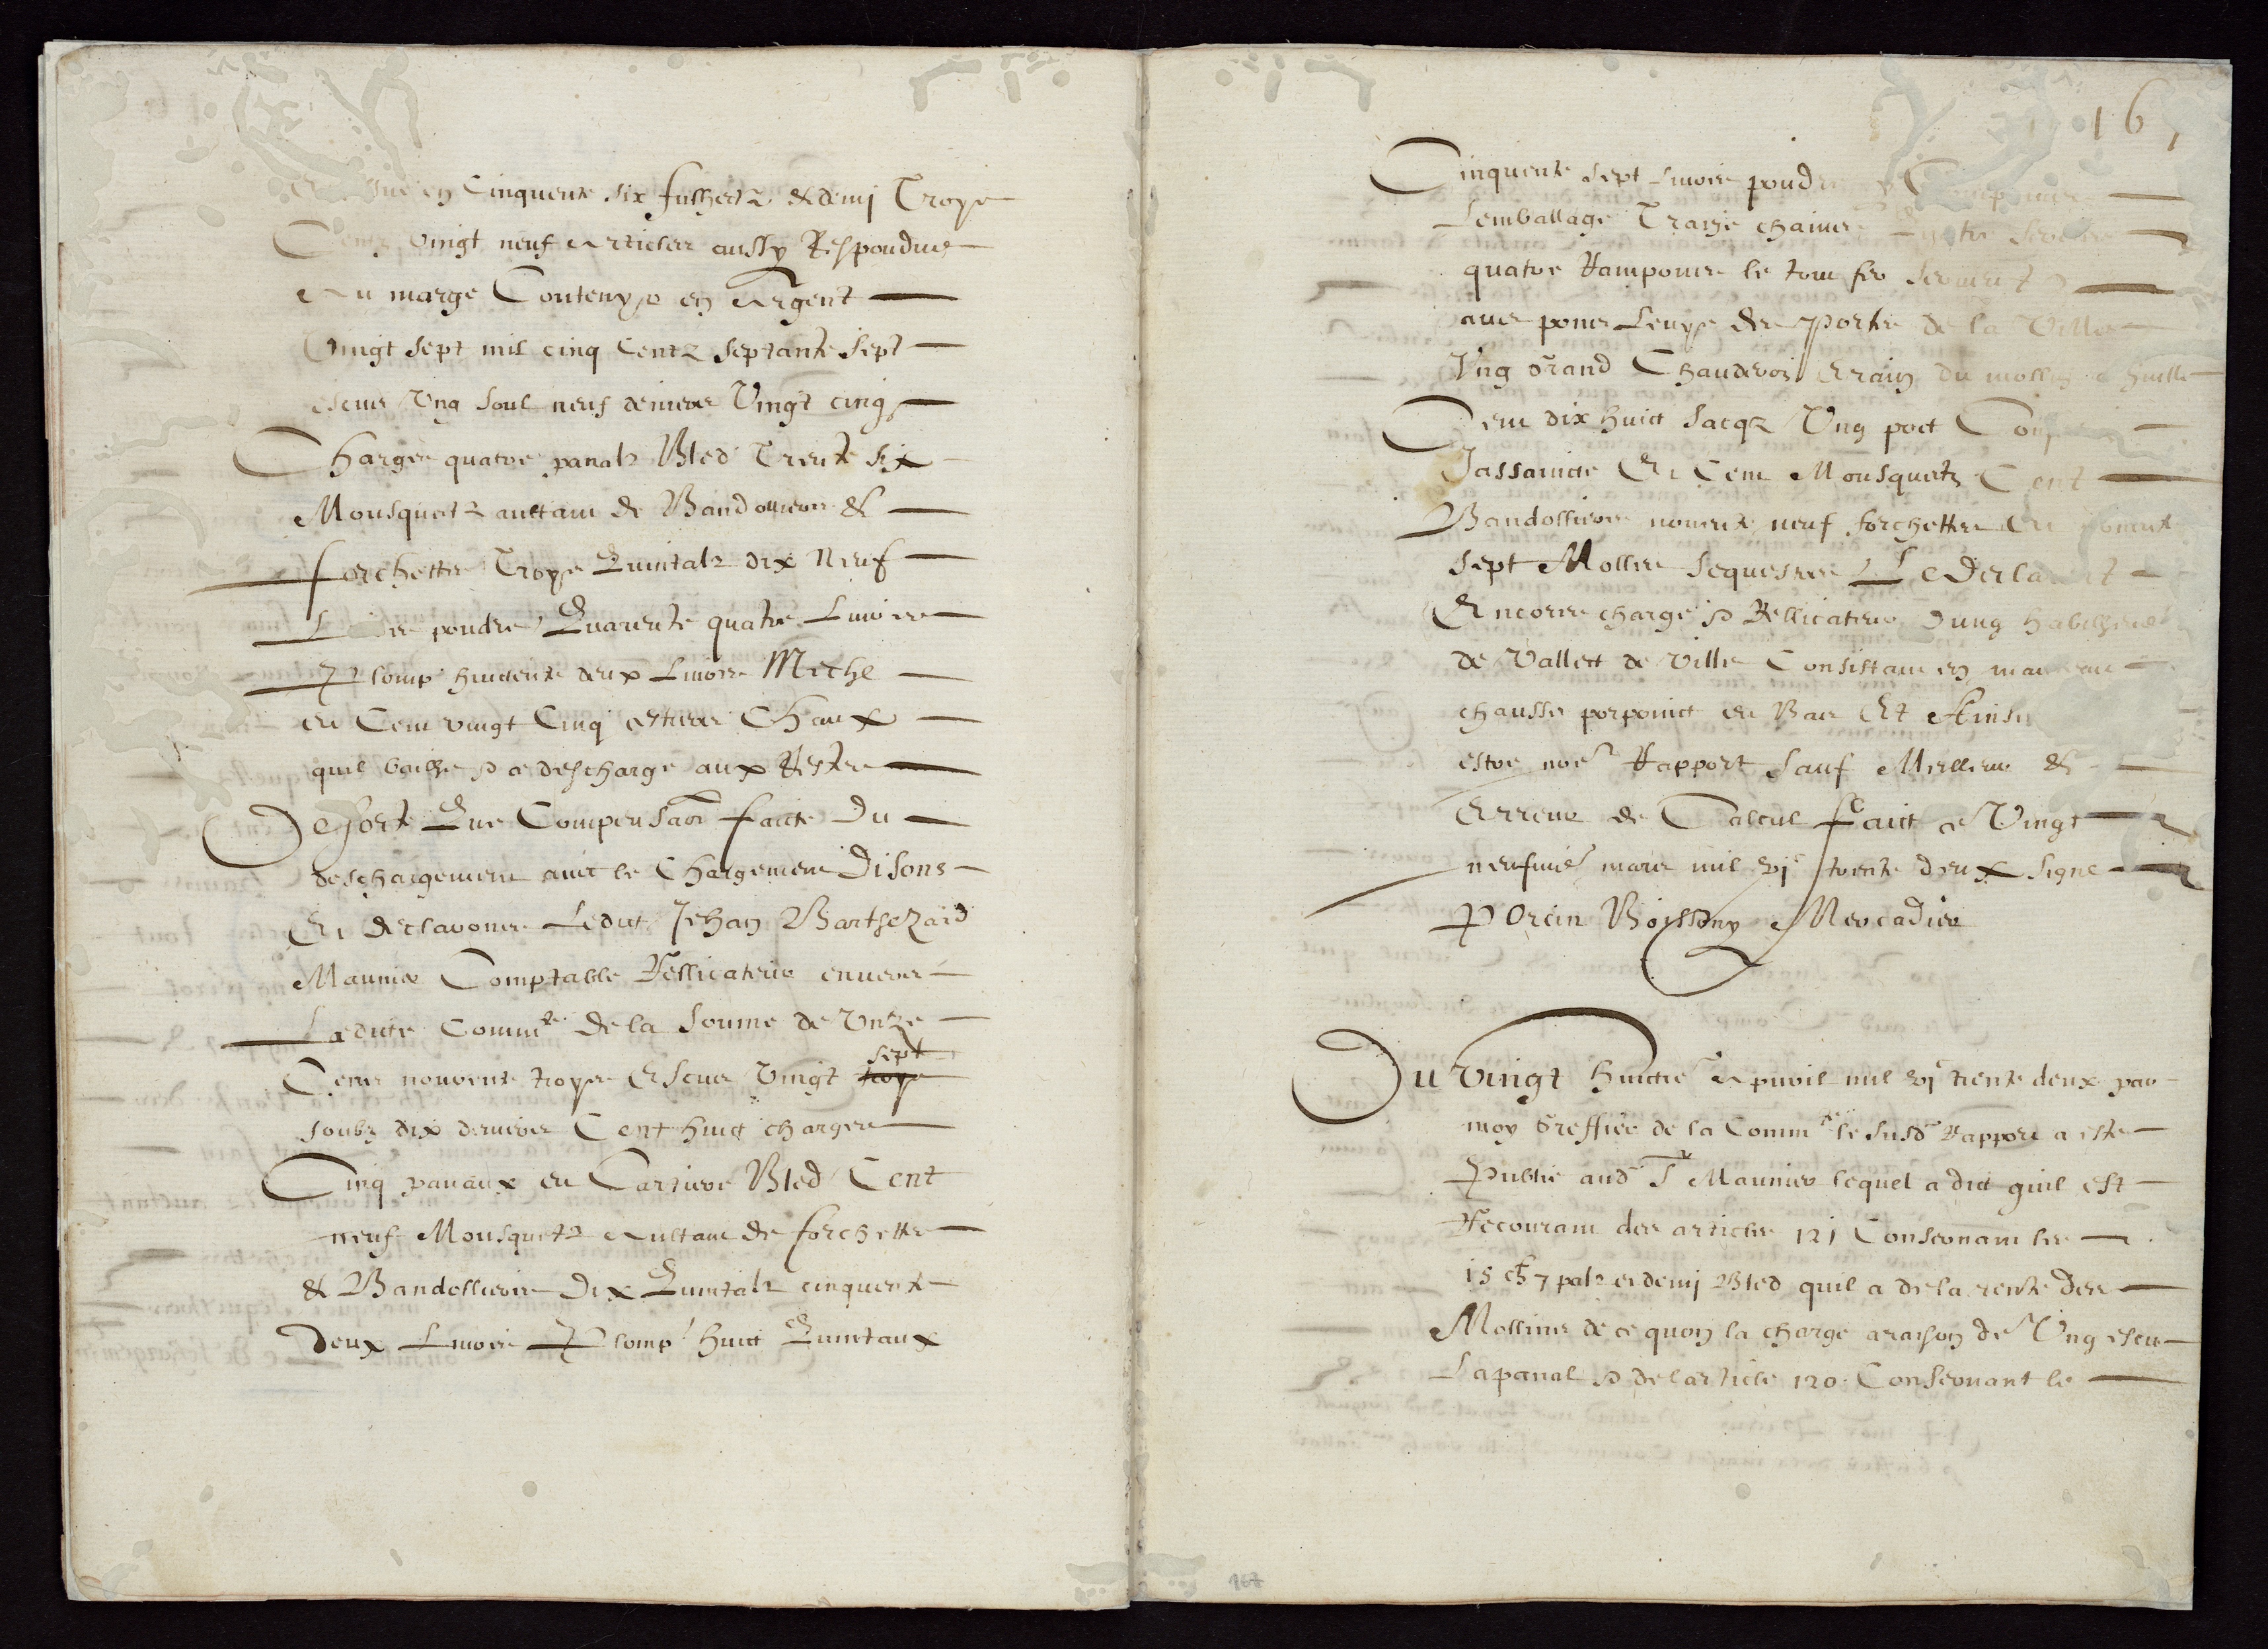 en cinquente six fulhetz & demj Troys
Centz vingt neuf articles aussy Respondus
Au marge Contenus en Argent
Vingt sept mil cinq Centz septante sept
escus Vng soul neuf deniers Vingt cinq
Charges quatre panalz Bled Trente six
Mousquetz aultant de Bandollieres &
forchettes Troys Quintalz dix Neuf
poudre Quarente quatre Livres
Plomp huictente deux Livres Meche
et Cent vingt Cinq estiers Chaux
quil baille p descharge aux Restes
De sorte Que Compensaon faicte Du
deschargement auec le Chargement Disons
Et desclarons Ledict Jehan Barthezard
Maunier Comptable Rellicateur enuers
Ladicte Commte de la Somme de Vntze
Cents nouvente troys Escus Vingt troys sept
soubz dix deniers Cent huict charges
Cinq panaux et Cartiere Bled Cent
neuf Mousquetz Aultant de forchettes
& Bandollieres Dix Quintalz cinquente
deux Livres Plomp huict Quintaux
16
Cinquente sept Livres poudre
Lemballage Traize chaines
quatre Ramponis le tout fer seruent
aux pons Leuys des Portes de la Ville
Vng Grand Chauderon Erain du mollin a huille
Cent dix huict Sacqz Vng poct
Jassaincte Et Cent Mousquetz Cent
Bandollieres nouente neuf forchettes Et
sept Molles sequestres Le Desclarant
Encores charge & Rellicateur Dung habillemt
de Vallect de Ville Consistant en manteau
chausses porpoinct et Bas Et Ainsi
estre noe Rapport Sauf Meilleur &
Erreur de Calcul faict ce Vingt
neufme mars mil vjc trente deux signe
Porcin Boissony Mercadier
Du Vingt huictie Apuril mil vjc trente deux par
moy Greffier de la Commte le susd Rapport a este
Publie aud Sr Maunier lequel a dict quil est
Recourant des articles 121 Conseruant les
15 ch 7 palz et demj Bled quil a de la rente des
Mollins de ce quon la charge a raison de Vng escu
La panal & de larticle 120 Conseruant le
167